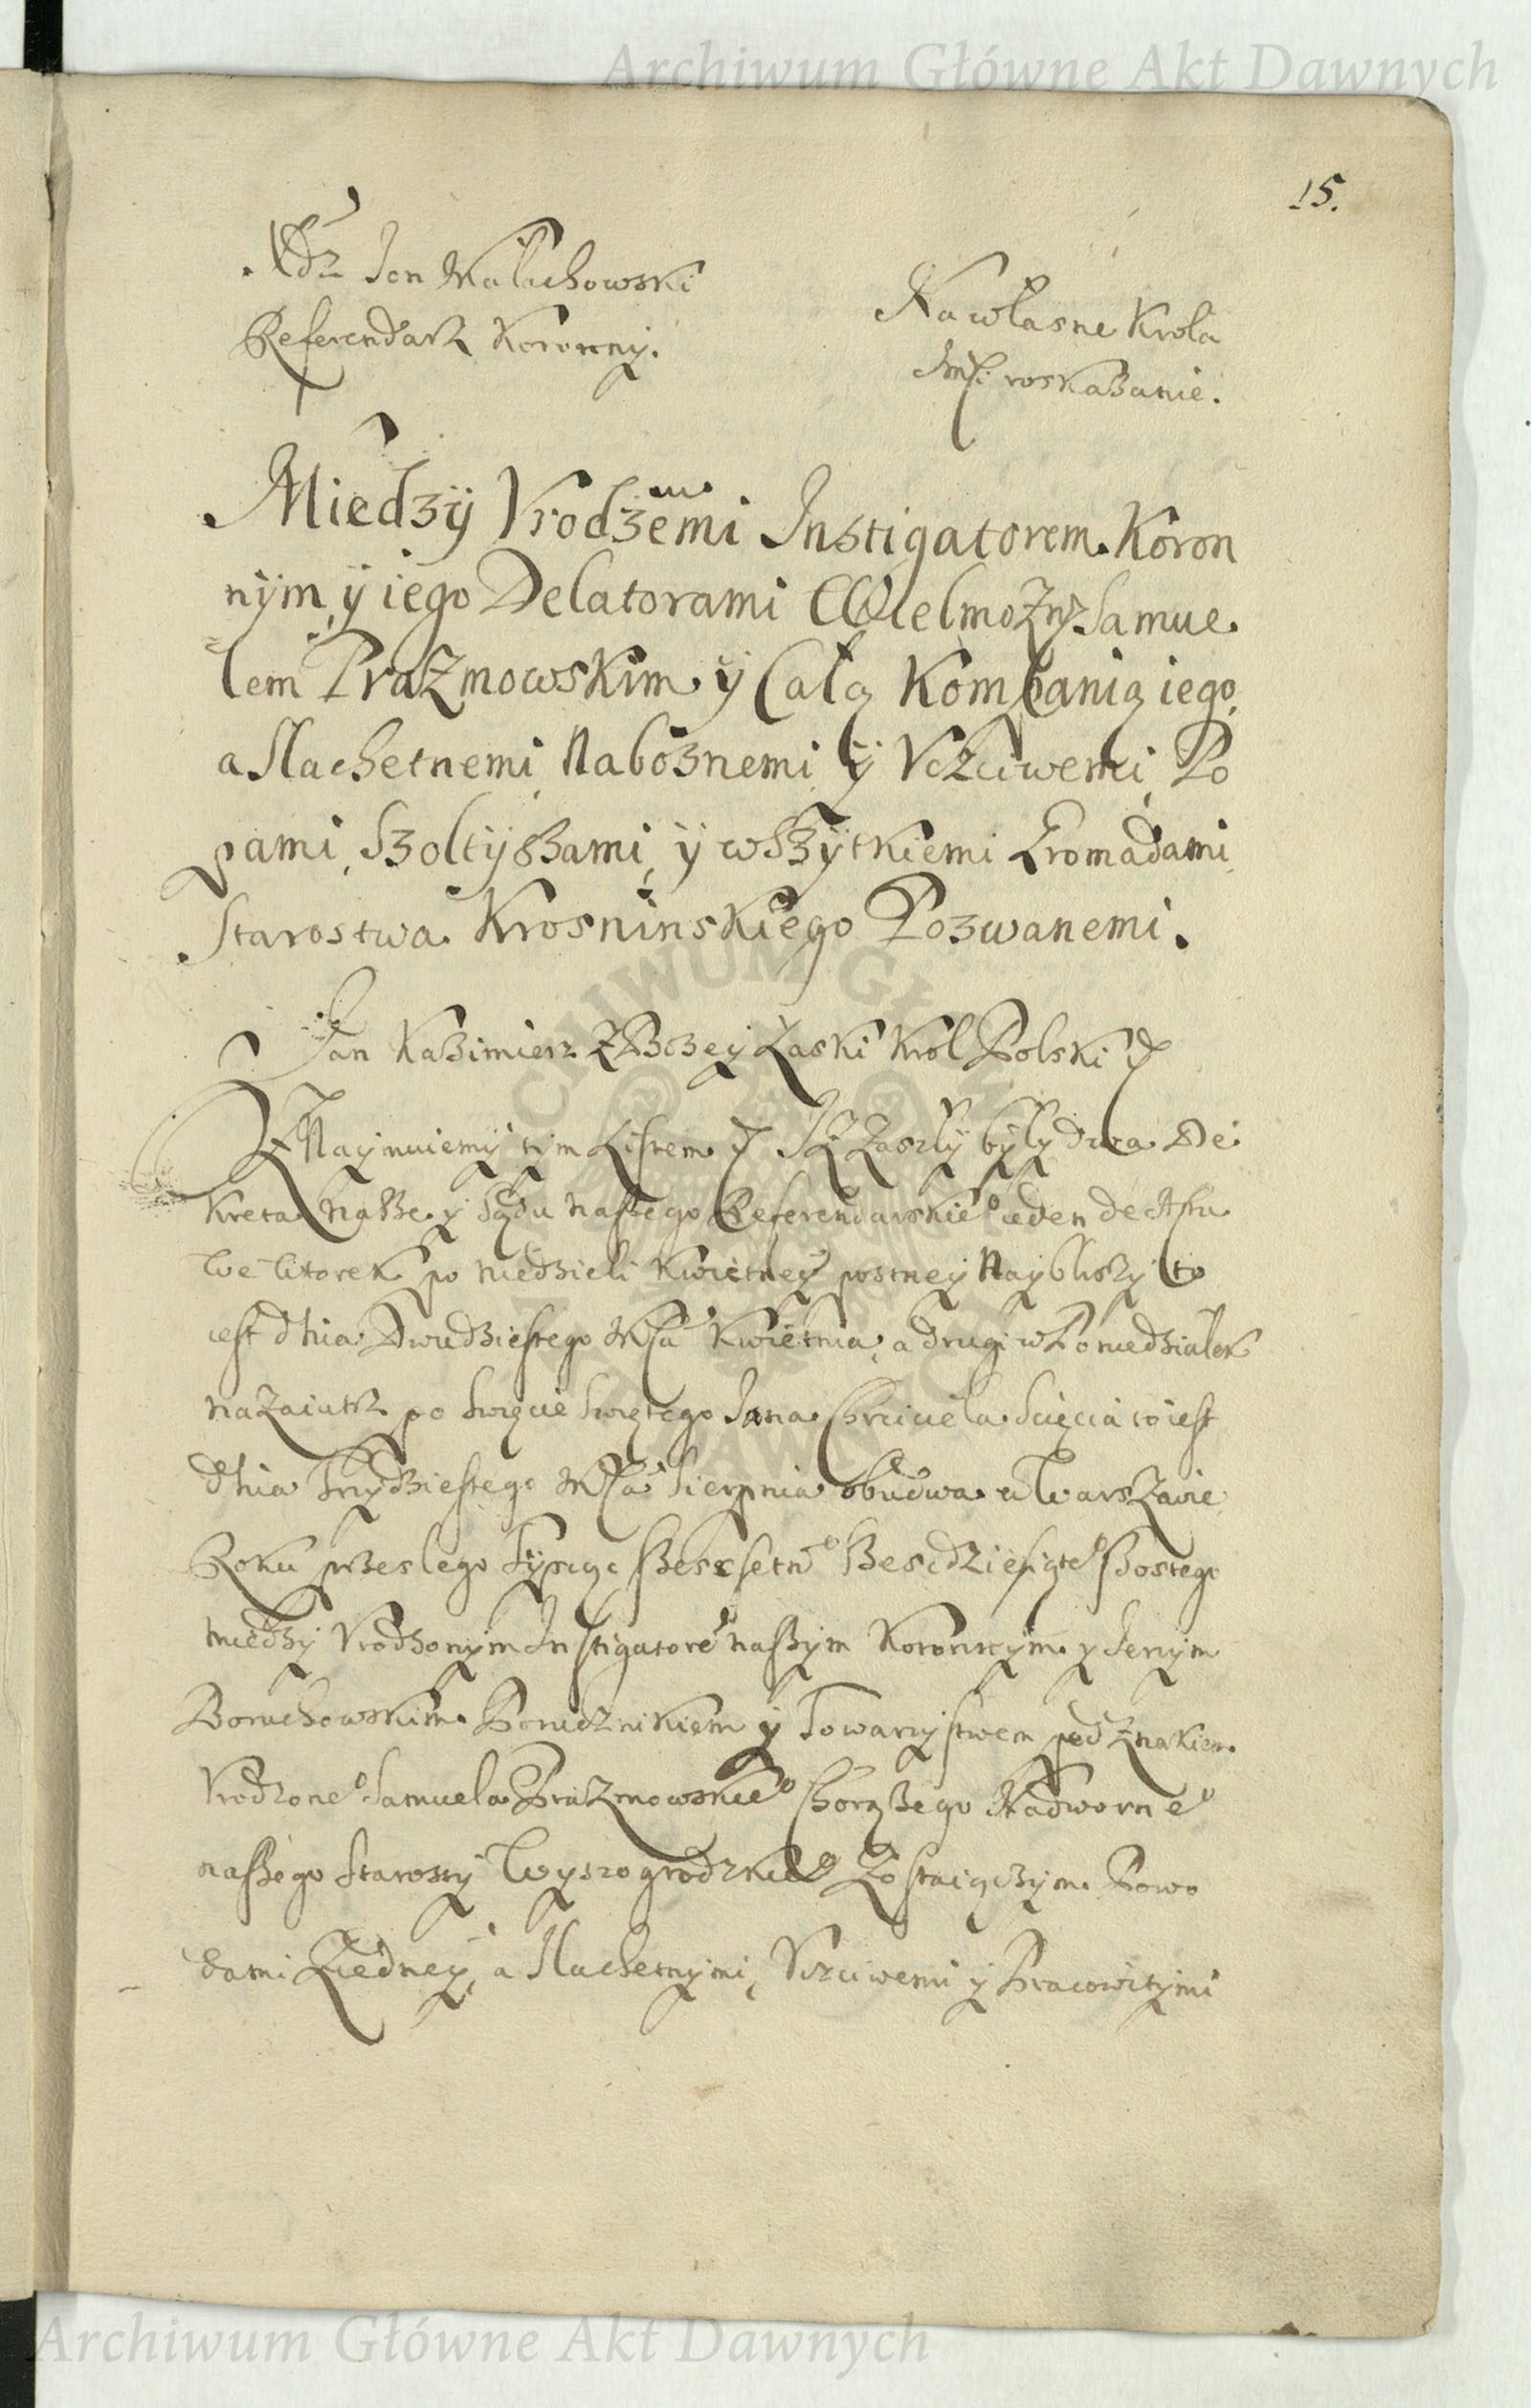 Archiwum Główne Akt Dawnych
15.
Xdz Jan Małachowski
Referendarz Koronny.
Na własne Krola
Jmsci roskazanie.
Miedzÿ Vrodzemi Instigatorem Koron
nÿm, ÿ iego Delatorami Wielmoznÿ Samue
lem Prazmowskim ÿ Całą Kompanią iego,
a Slachetnemi, Nabożnemi, ÿ Vczciwemi, Po
pami, Szoltÿszami, ÿ wszÿtkiemi Gromadami
Starostwa Krosninskiego Pozwanemi.
Jan Kazimierz Z Bozey Łaski Krol Polski
Znaÿmuiemÿ tÿm Listem Iz Zaszłÿ bÿłÿ dwa De
kreta nasze y Sądu naszego Referendarskieo ieden de Actu
we Wtorek po niedzieli Kwietneÿ postneÿ Naÿbliszÿ to
iest dnia Dwudziestego Msca Kwietnia, a drugi w Poniedziałek
nazaiutrz po Swięcie Swiętego Jana Chrciciela Scięcia to iest
dnia Trzydziestego Msca Sierpnia obudwa w Warszawie
Roku przeszlego Tÿsiąc Szescsetneo Szescdziesiąteo Szostego
miedzÿ Vrodzonÿm Instigatorem naszÿm Koronnÿm y
Boruchowskim Porucznikiem ÿ Towarzÿstwem pod Znakiem
Vrodzoneo Samuela Prazmowskieo Chorązego Nadworneo
naszego Starostÿ Wyszogrodzkieo Zostaiączÿm Powo
dami Ziedneÿ, a Slachetnÿmi, Vczciwemi ÿ Pracowitÿmi
Archiwum Główne Akt Dawnych